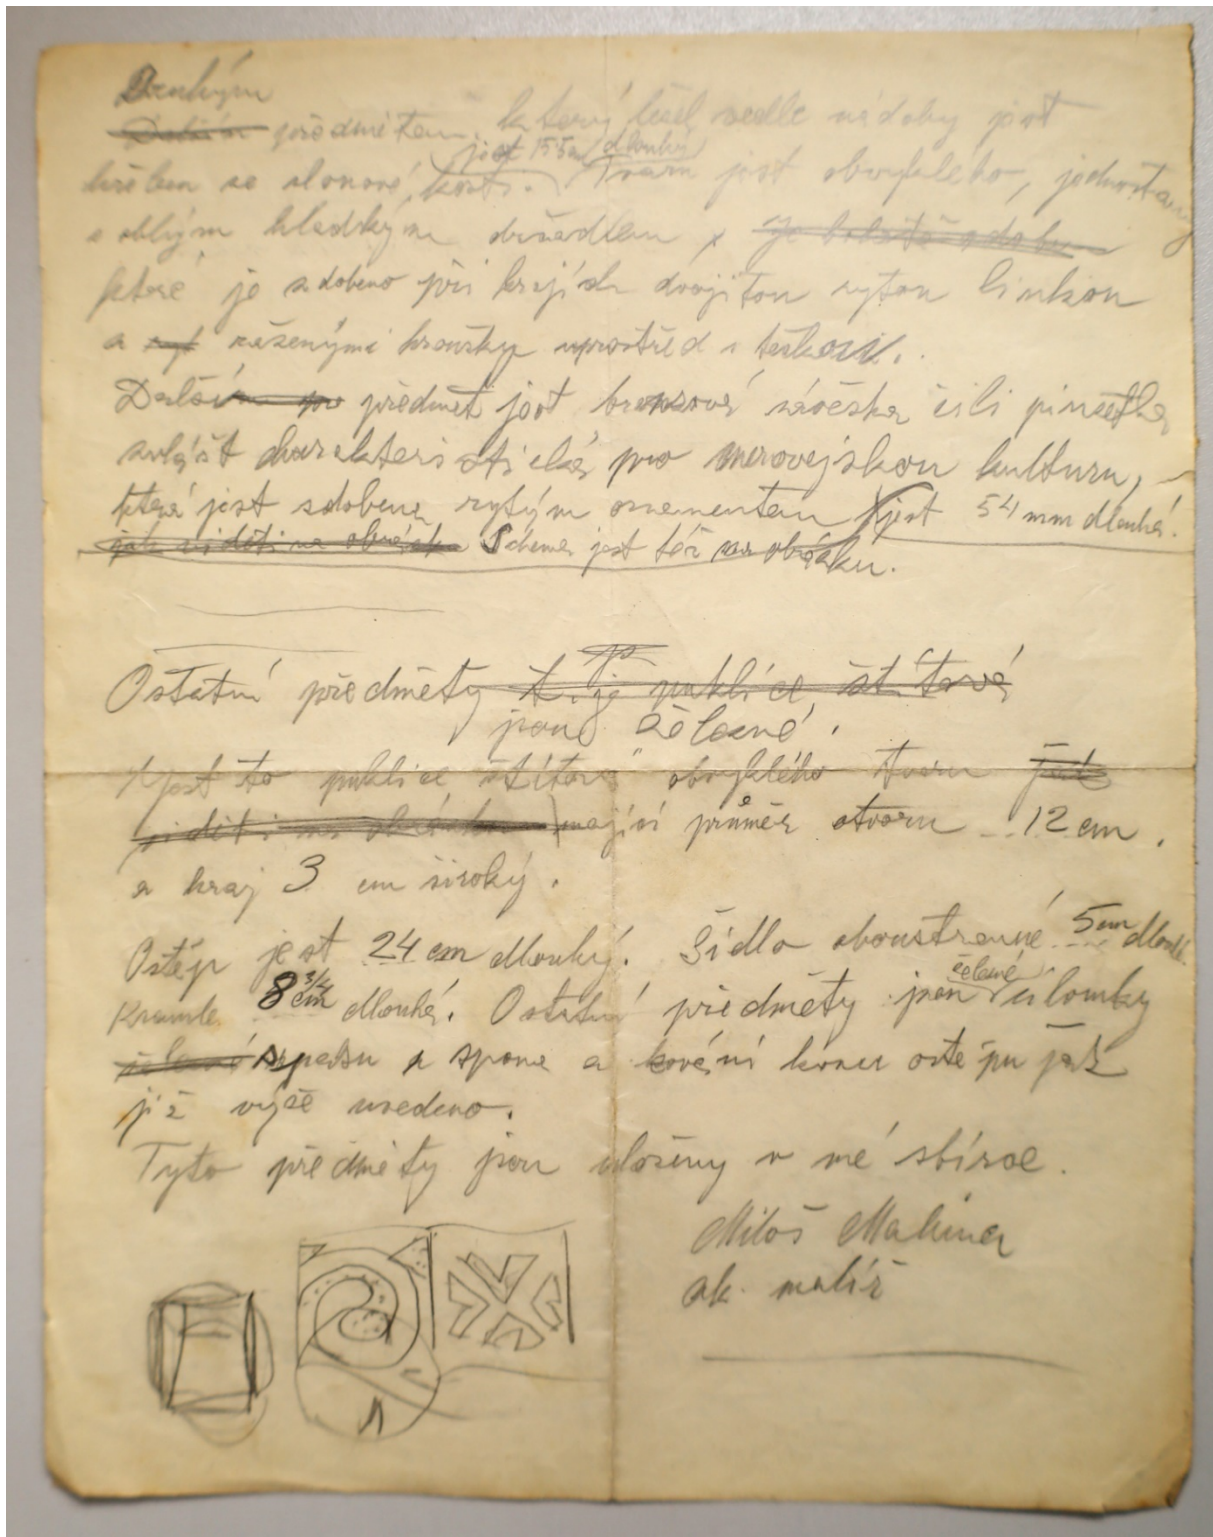 Druhým
předmětem, který ležel vedle nádoby jest
jest 155m dlouhý
hřeben ze slonové kosti. Tvaru jest obvyklého, jednostranný
s oblým hladkým držadlem
které je zdobeno při krajích dvojitou rytou linkou
a raženými kroužky uprostřed s tečkou.
Další předmět jest bronzová náčeska čili pinsetka
zvlášt charakteristická pro merovejskou kulturu,
která jest zdobena rytým ornamentem jest 54 mm dlouhá.
jak viděti na obrázku Schema jest též na obrázku.
Ostatní předměty t. j. puklice štítová
jsou železné.
Jest to puklice štítová obvyklého tvaru jak
viděti na obrázku mající průměr otvoru 12 cm.
a kraj 3 cm široký.
Ostěp jest 24 cm dlouhý. Šídlo oboustranné 5 cm dlouhé.
Kramle 8 3/4 cm dlouhá. Ostatní předměty jsou železné úlomky
spona a kování konce ostěpu jak
již výše uvedeno.
Tyto předměty jsou uloženy v mé sbírce.
Miloš Malina
ak. malíř